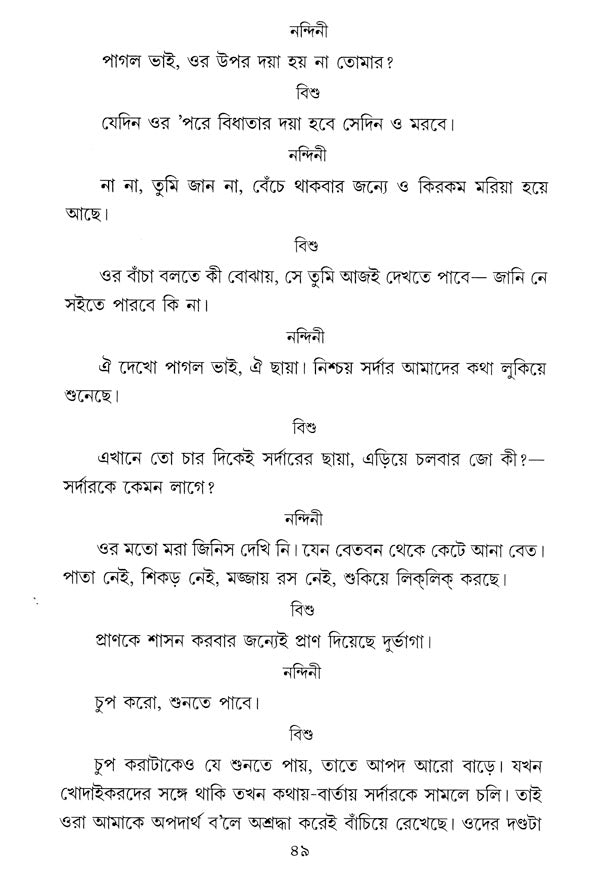 নন্দিনী
পাগল ভাই, ওর উপর দয়া হয় না তোমার?
বিশু
যেদিন ওর ’পরে বিধাতার দয়া হবে সেদিন ও মরবে।
নন্দিনী
না না, তুমি জান না, বেঁচে থাকবার জন্যে ও কিরকম মরিয়া হয়ে
আছে।
বিশু
ওর বাঁচা বলতে কী বোঝায়, সে তুমি আজই দেখতে পাবে— জানি নে
সইতে পারবে কি না।
নন্দিনী
ঐ দেখো পাগল ভাই, ঐ ছায়া। নিশ্চয় সর্দার আমাদের কথা লুকিয়ে
শুনেছে।
বিশু
এখানে তো চার দিকেই সর্দারের ছায়া, এড়িয়ে চলবার জো কী?—
সর্দারকে কেমন লাগে?
নন্দিনী
ওর মতো মরা জিনিস দেখি নি। যেন বেতবন থেকে কেটে আনা বেত।
পাতা নেই, শিকড় নেই, মজ্জায় রস নেই, শুকিয়ে লিক্‌লিক্ করছে।
বিশু
প্রাণকে শাসন করবার জন্যেই প্রাণ দিয়েছে দুর্ভাগা।
নন্দিনী
চুপ করো, শুনতে পাবে।
বিশু
চুপ করাটাকেও যে শুনতে পায়, তাতে আপদ আরো বাড়ে। যখন
খোদাইকরদের সঙ্গে থাকি তখন কথায়-বার্তায় সর্দারকে সামলে চলি। তাই
ওরা আমাকে অপদার্থ ব’লে অশ্রদ্ধা করেই বাঁচিয়ে রেখেছে। ওদের দণ্ডটা
৪৯